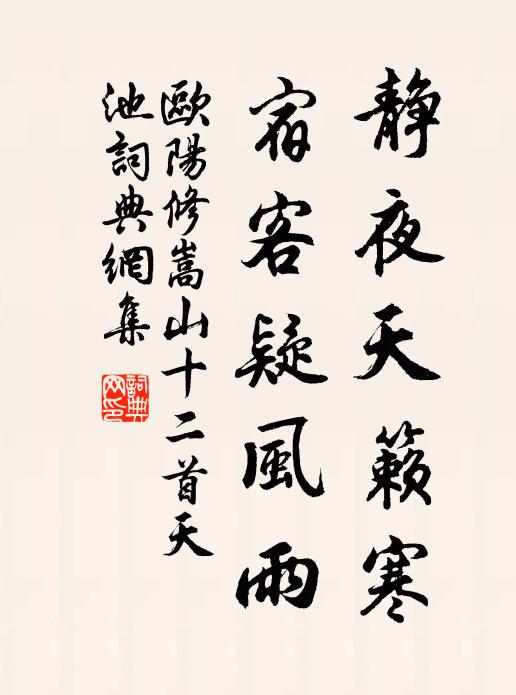 静夜天籟寒
宿客疑風雨
歐陽修嵩山十二首天
池詞典網集
詞典
网印